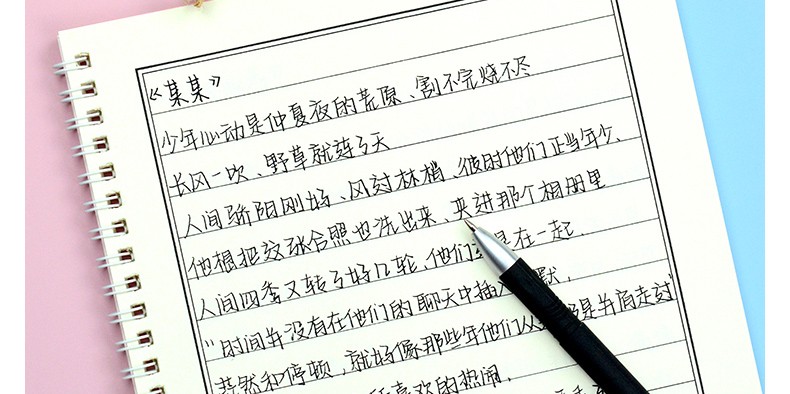 《某某》
少年心动是仲夏夜的荒原、割不完烧不尽
长风一吹、野草就连了天
人间骄阳刚好、风过林梢、彼时他们正当年少、
他想把这张合照也洗出来、夹进那个相册里
人间四季又转了好几轮、他们 是在一起.
"时间并没有在他们的聊天中插 默,
茫然和停顿, 就好像那些年他们从 是并肩走过
喜欢的热闹,